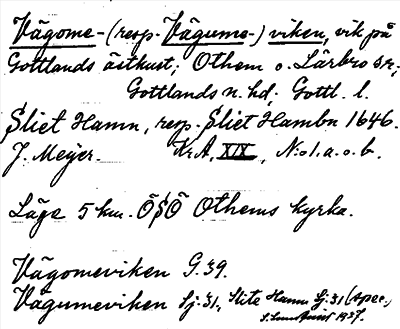 Vägome- (resp. Vägume-) viken, vik på
Gottlands östkust; Othem o. Lärbro snr;
Gottlands n. hd; Gottl. l.
Sliet Hamn, resp. Sliet Hambn 1646.
J. Meyer. Kr.A, XIX, N:o 1. a. o. b.
Läge 5 km. ÖSÖ Othems kyrka.
Vägomeviken G. 39.
Vägumeviken Sj: 31, Slite Hamn Sj: 31 (Spec.)
1937.